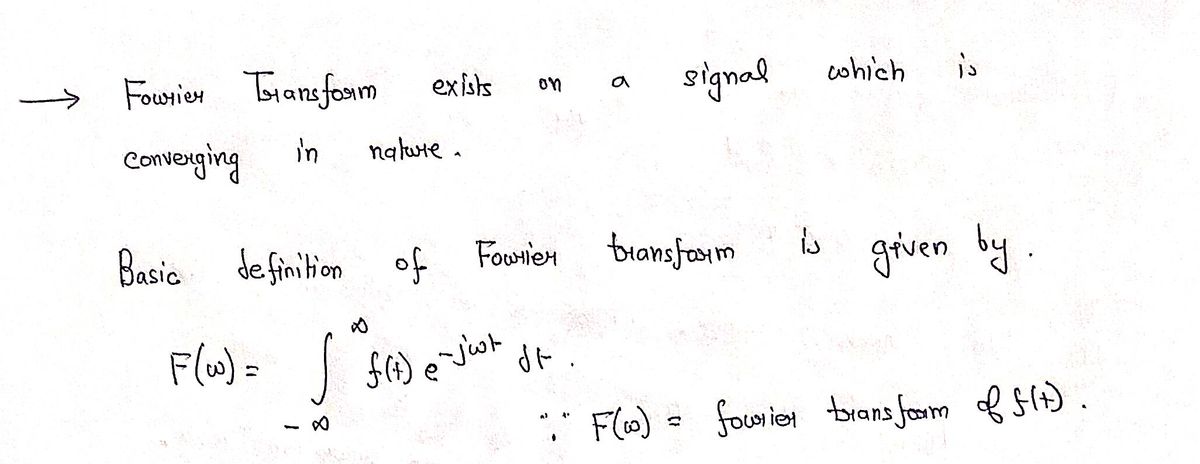 → Fourier Transform exists on a signal which is
converging in nature.
Basic definition of Fourier transform is given by.
F(ω) = ∫_{-∞}^{∞} f(t) e^{-jωt} dt.
∵ F(ω) = fourier transform of f(t).